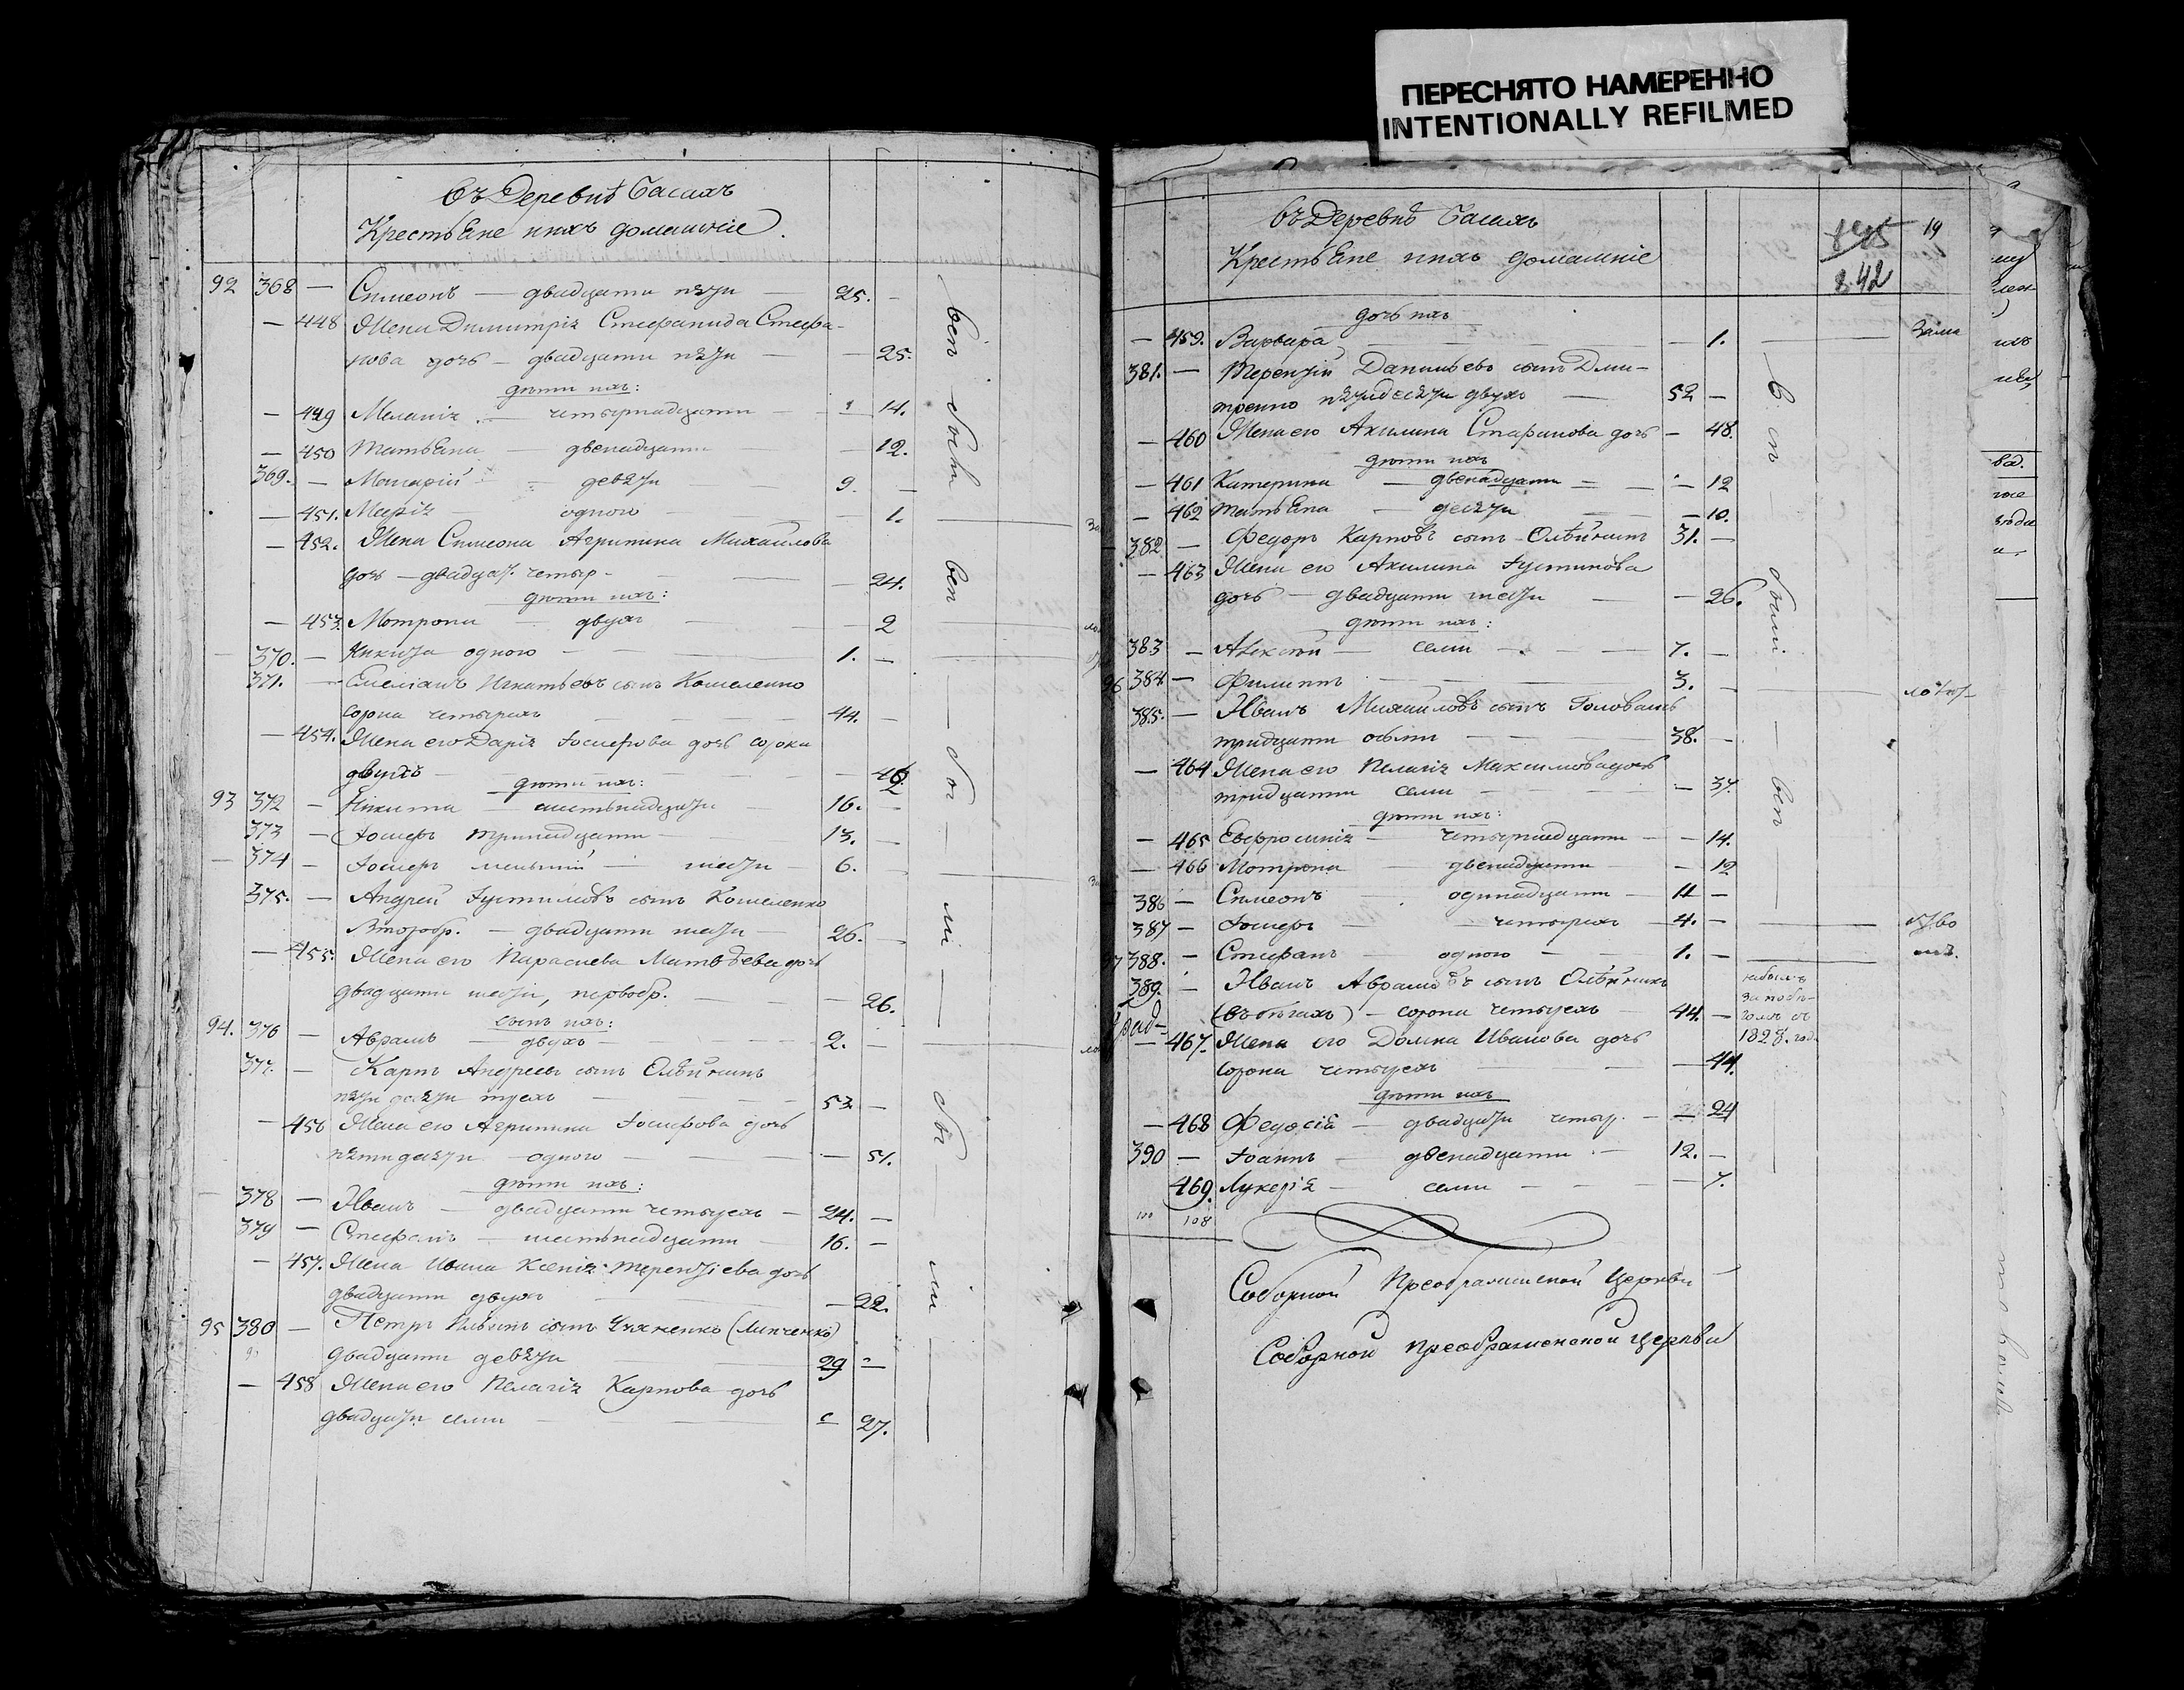 ПЕРЕСНЯТО НАМЕРЕННО
INTENTIONALLY REFILMED
въ Деревнѣ Басахъ
Крестьяне ихъ домашніе.
92 368 — Симеонъ — двадцати пяти — 25. —
— 448 Жена Димитрія Стефанида Стефа-
нова дочь — двадцати пяти — — 25.
дѣти ихъ:
— 449 Меланія — четырнадцати — 14.
— 450 Татьяна — двенадцати — 12.
369. — девяти 9. —
— 451. Марія — одного — 1.
— 452. Жена Симеона Агрипина Михайлова
дочь — двадцат. четыр- — 24.
дѣти ихъ:
— 453. Мотрона — двухъ — 2
370. — Никита одного — 1. —
371. — Емеліанъ Игнатьевъ сынъ Кошеленко
сорока четырехъ 44. —
— 454. Жена его Дарія Іосифова дочь сорока
двухъ — 42
дѣти ихъ:
93 372 — Никита — шестьнадцати 16. —
373 — Іосифъ тринадцати — 13. —
— 374 — Іосифъ меньшій — шести — 6. —
375. — Андрей Іустимовъ сынъ Кошеленко
Второбр. — двадцати шести — 26. —
— 455. Жена его Парасиева Матвѣева дочь
двадцати шести, первобр. — 26.
сынъ ихъ:
94. 376 — Аврамъ — двухъ — 2. —
377. — Карпъ Андреевъ сынъ Олѣйникъ
пяти десяти трехъ 53 —
— 456 Жена его Агрипина Іосифова дочь
пятидесяти — одного — 51.
дѣти ихъ:
378 — Иванъ — двадцати четырехъ — 24. —
379 — Стефанъ — шестьнадцати 16. —
— 457. Жена Ивана Ксенія Терентіева дочь
двадцати двухъ — 22.
95 380 — Петръ сынъ (Липченко)
двадцати девяти 29 —
— 458 Жена его Пелагія Карпова дочь
двадцати семи 27.
въ Деревнѣ Басахъ
Крестьяне ихъ домашніе
842
19
дочь ихъ
— 459. Варвара — 1.
381. — Терентій Даниловъ сынъ Дми-
тренко пятидесяти двухъ — 52 —
— 460 Жена его Акилина Стефанова дочь — 48.
дѣти ихъ
— 461 Катерина — двенадцати — 12
— 462 Татьяна — десяти — 10.
382 — Федоръ Карповъ сынъ Олѣйникъ 31. —
— 463 Жена его Акилина Іустинова
дочь — двадцати шести — 26.
дѣти ихъ:
383 — Алексѣй — семи — 7. —
96 384 — Филиппъ — 3. —
385. — Иванъ Михайловъ сынъ Головань
тридцати осьми — 38. —
— 464 Жена его Пелагія Максимова дочь
тридцати семи — 37.
дѣти ихъ:
— 465 Евфросинія — четырнадцати — 14.
— 466 Мотрона двенадцати — 12
386 — Симеонъ одинадцати — 11 —
387 — Іосифъ — четырехъ 4. —
388. — Стефанъ — одного — 1. —
389. — Иванъ Аврамовъ сынъ Олѣйникъ
(въ бѣгахъ) — сорока четырехъ 44. —
1828. год.
— 467. Жена его Домна Иванова дочь
сорока четырехъ — 44.
дѣти ихъ
— 468 Феодосія — двадцати четыр. — 24
390 — Іоаннъ — двенадцати — 12. —
469. Лукерія — семи — 7.
100 108
Соборной Преображенской Церкви
Соборной Преображенской Церкви